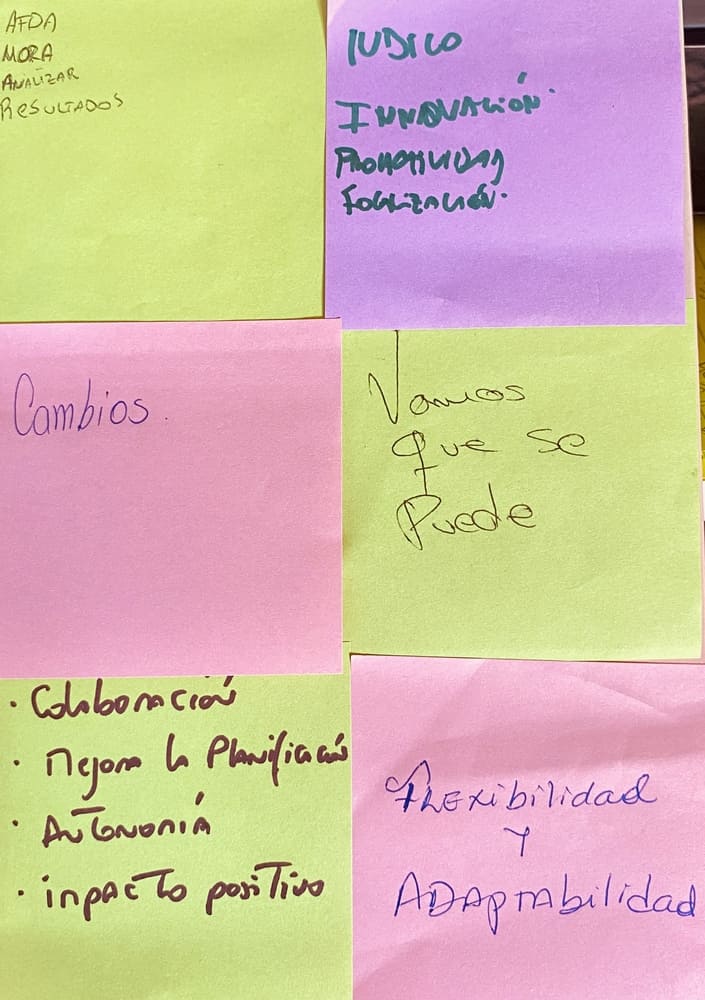 AFDA
MORA
ANALIZAR
RESULTADOS
IUDICO
INNOVACIÓN.
PROACTIVIDAD
FOCALIZACIÓN.
Cambios.
Vamos
que se
Puede
· Colaboración
· Mejora la Planificación
· AUTONOMÍA
· inpacto positivo
FLExibilidad
Y
ADAptAbilidad